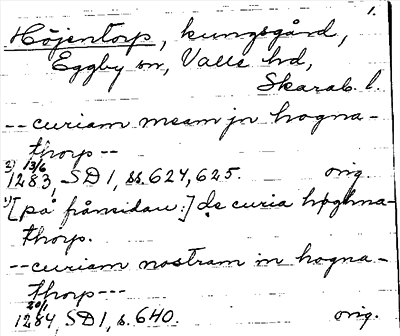 1.
Höjentorp, kungsgård,
Eggby sn, Valle hd,
Skarab. l.
-- curiam meam jn hogna-
thorp --
2) 13/6 1283, SD 1, ss. 627, 625. orig.
1) [på frånsidan:] de curia høghna-
thorp.
-- curiam nostram in hogna-
thorp ---
20/1 1284, SD 1, s. 640. orig.